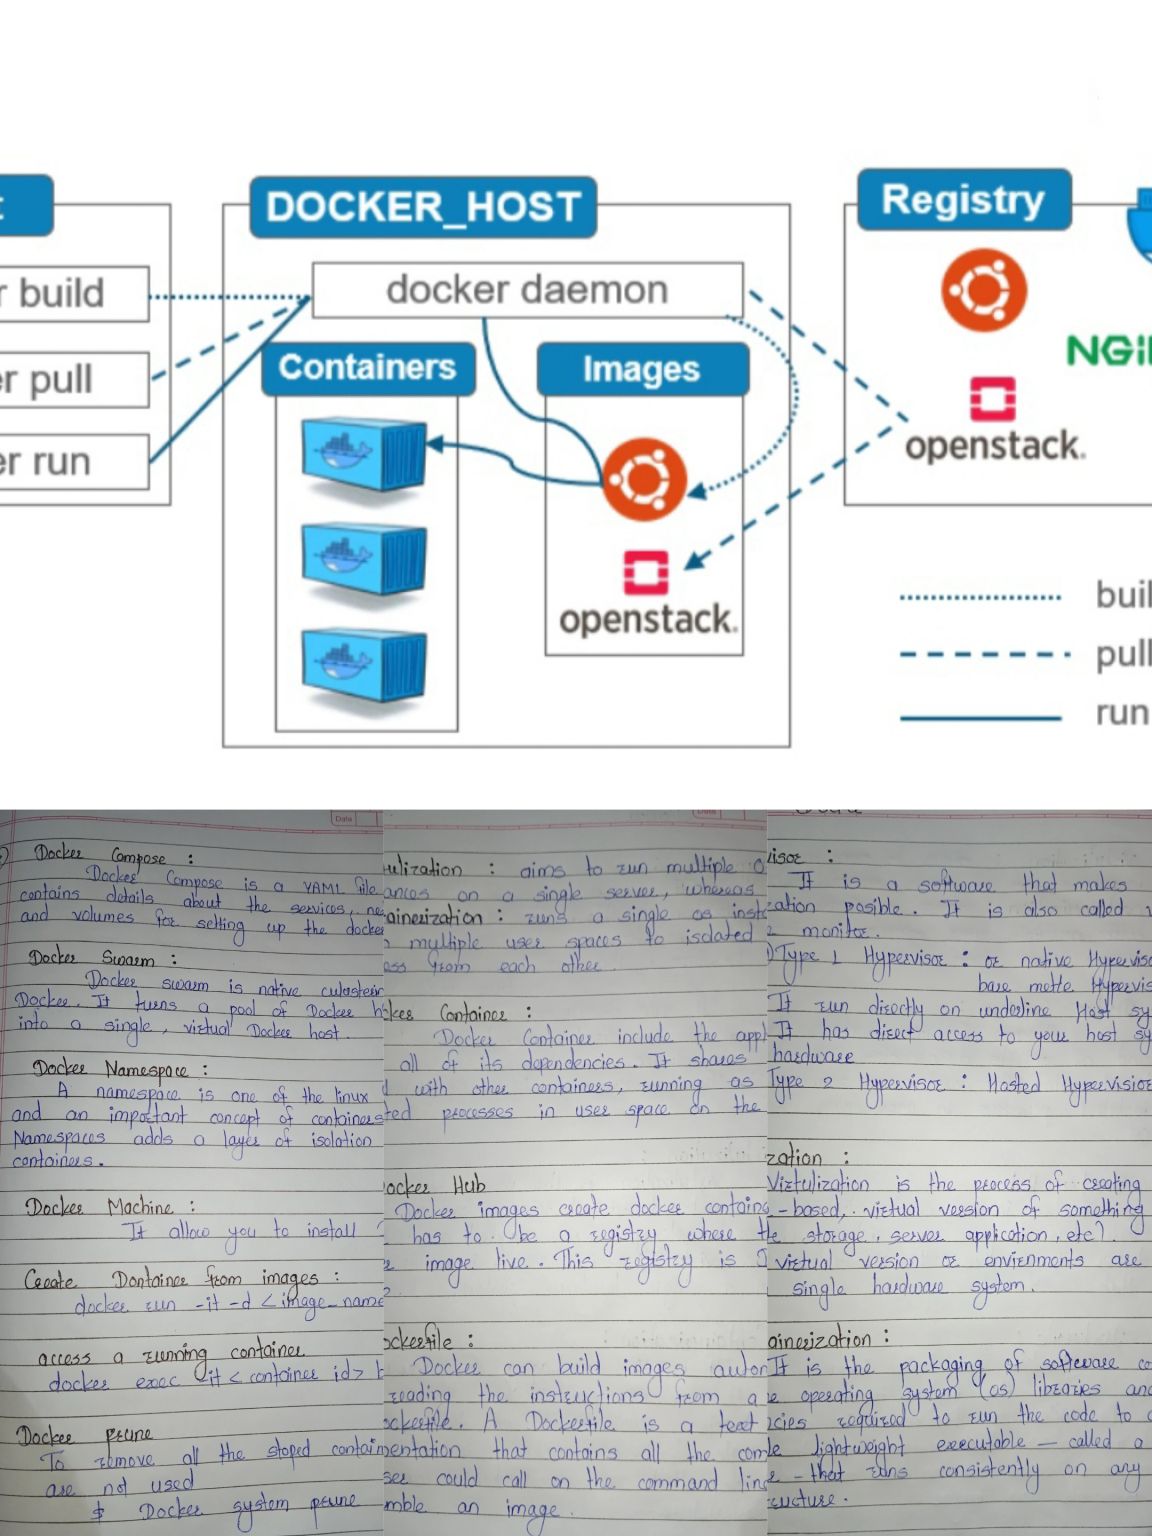 DOCKER_HOST
Registry
build
docker daemon
Containers
Images
pull
run
openstack.
openstack.
pull
run
Date
Docker Compose :
Docker Compose is a YAML file
contains details about the services,
and volumes for setting up the docker
Docker Swarm :
Docker swarm is native
Docker. It turns a pool of Docker
into a single, virtual Docker host.
Docker Namespace :
A namespace is one of the linux
and an important concept of containers
Namespaces adds a layer of isolation
containers.
Docker Machine :
It allow you to install
Create Dontainer from images :
docker run -it -d <image_name
access a running container
docker exec -it < container id>
Docker prune
To remove all the stoped
are not used
$ Docker system prune
aims to run multiple
on a single server, whereas
runs a single os
multiple user spaces to isolated
from each other.
Container :
Docker Container include the
all of its dependencies. It shares
with other containers, running as
processes in user space on the
Hub
Docker images create docker
has to be a registry where
image live. This registry is
Docker can build images
reading the instructions from a
A Dockerfile is a text
that contains all the
could call on the command
an image.
:
It is a software that makes
posible. It is also called
monitor.
Type 1 Hypervisor : or native
bare mette
It run directly on underline Host
It has direct access to your host
hardware
Type 2 Hypervisor : Hasted Hypervisior
:
Virtulization is the process of creating
-based, virtual version of something
storage, server application, etc?.
virtual version or envienments are
single hardware system.
:
It is the packaging of software
operating system (os) libraries
required to run the code to
lightweight executable — called a
- that runs consistently on any